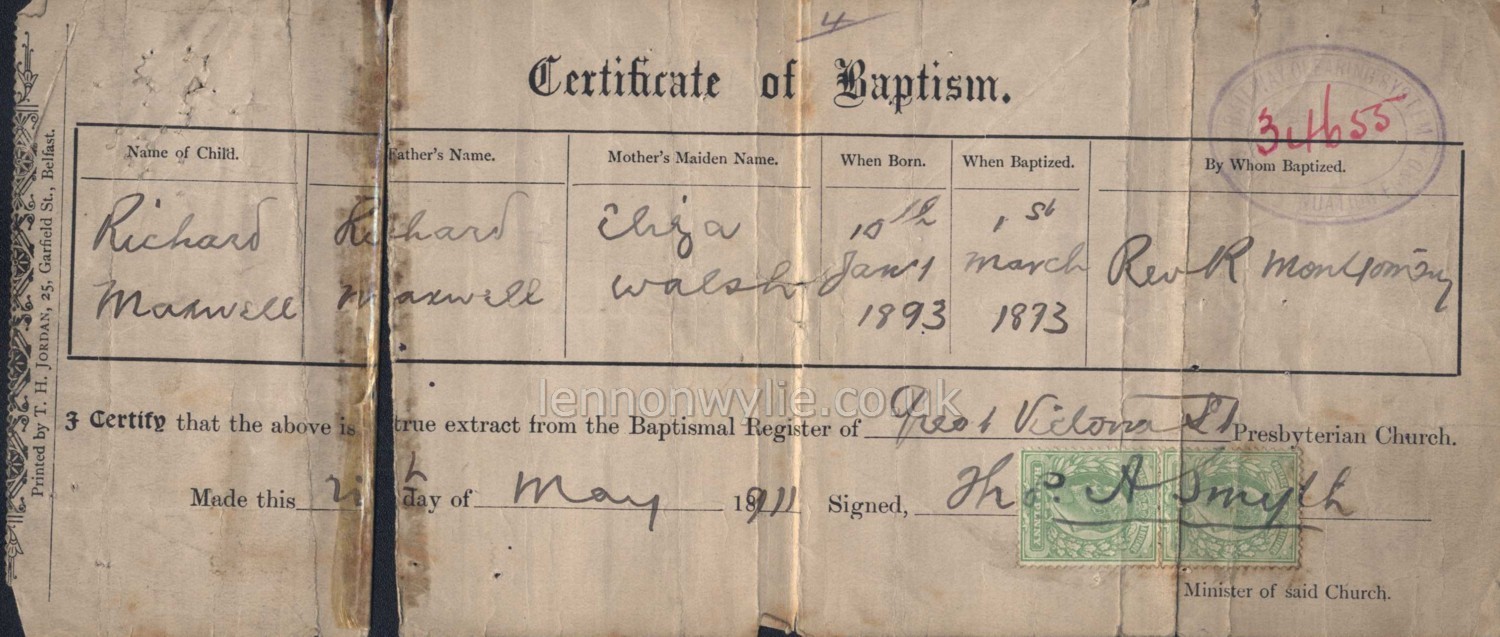 4
Certificate of Baptism.
34655
Name of Child. Father's Name. Mother's Maiden Name. When Born. When Baptized. By Whom Baptized.
Richard Richard Eliza 10th 1st
Maxwell Maxwell Walsh Jany March Rev R Montgomery
1893 1893
lennonwylie.co.uk
I Certify that the above is true extract from the Baptismal Register of Great Victoria St Presbyterian Church.
Made this day of May 1911 Signed, Thos. A Smyth
Minister of said Church.
Printed by T. H. JORDAN, 25, Garfield St., Belfast.